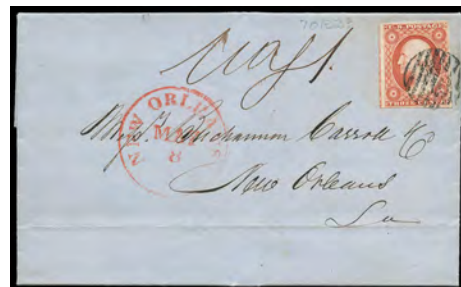 U.S. POSTAGE
THREE CENTS
NEW ORLEANS
MAY
8
Mess. Buchannon Carroll & Co
New Orleans
La